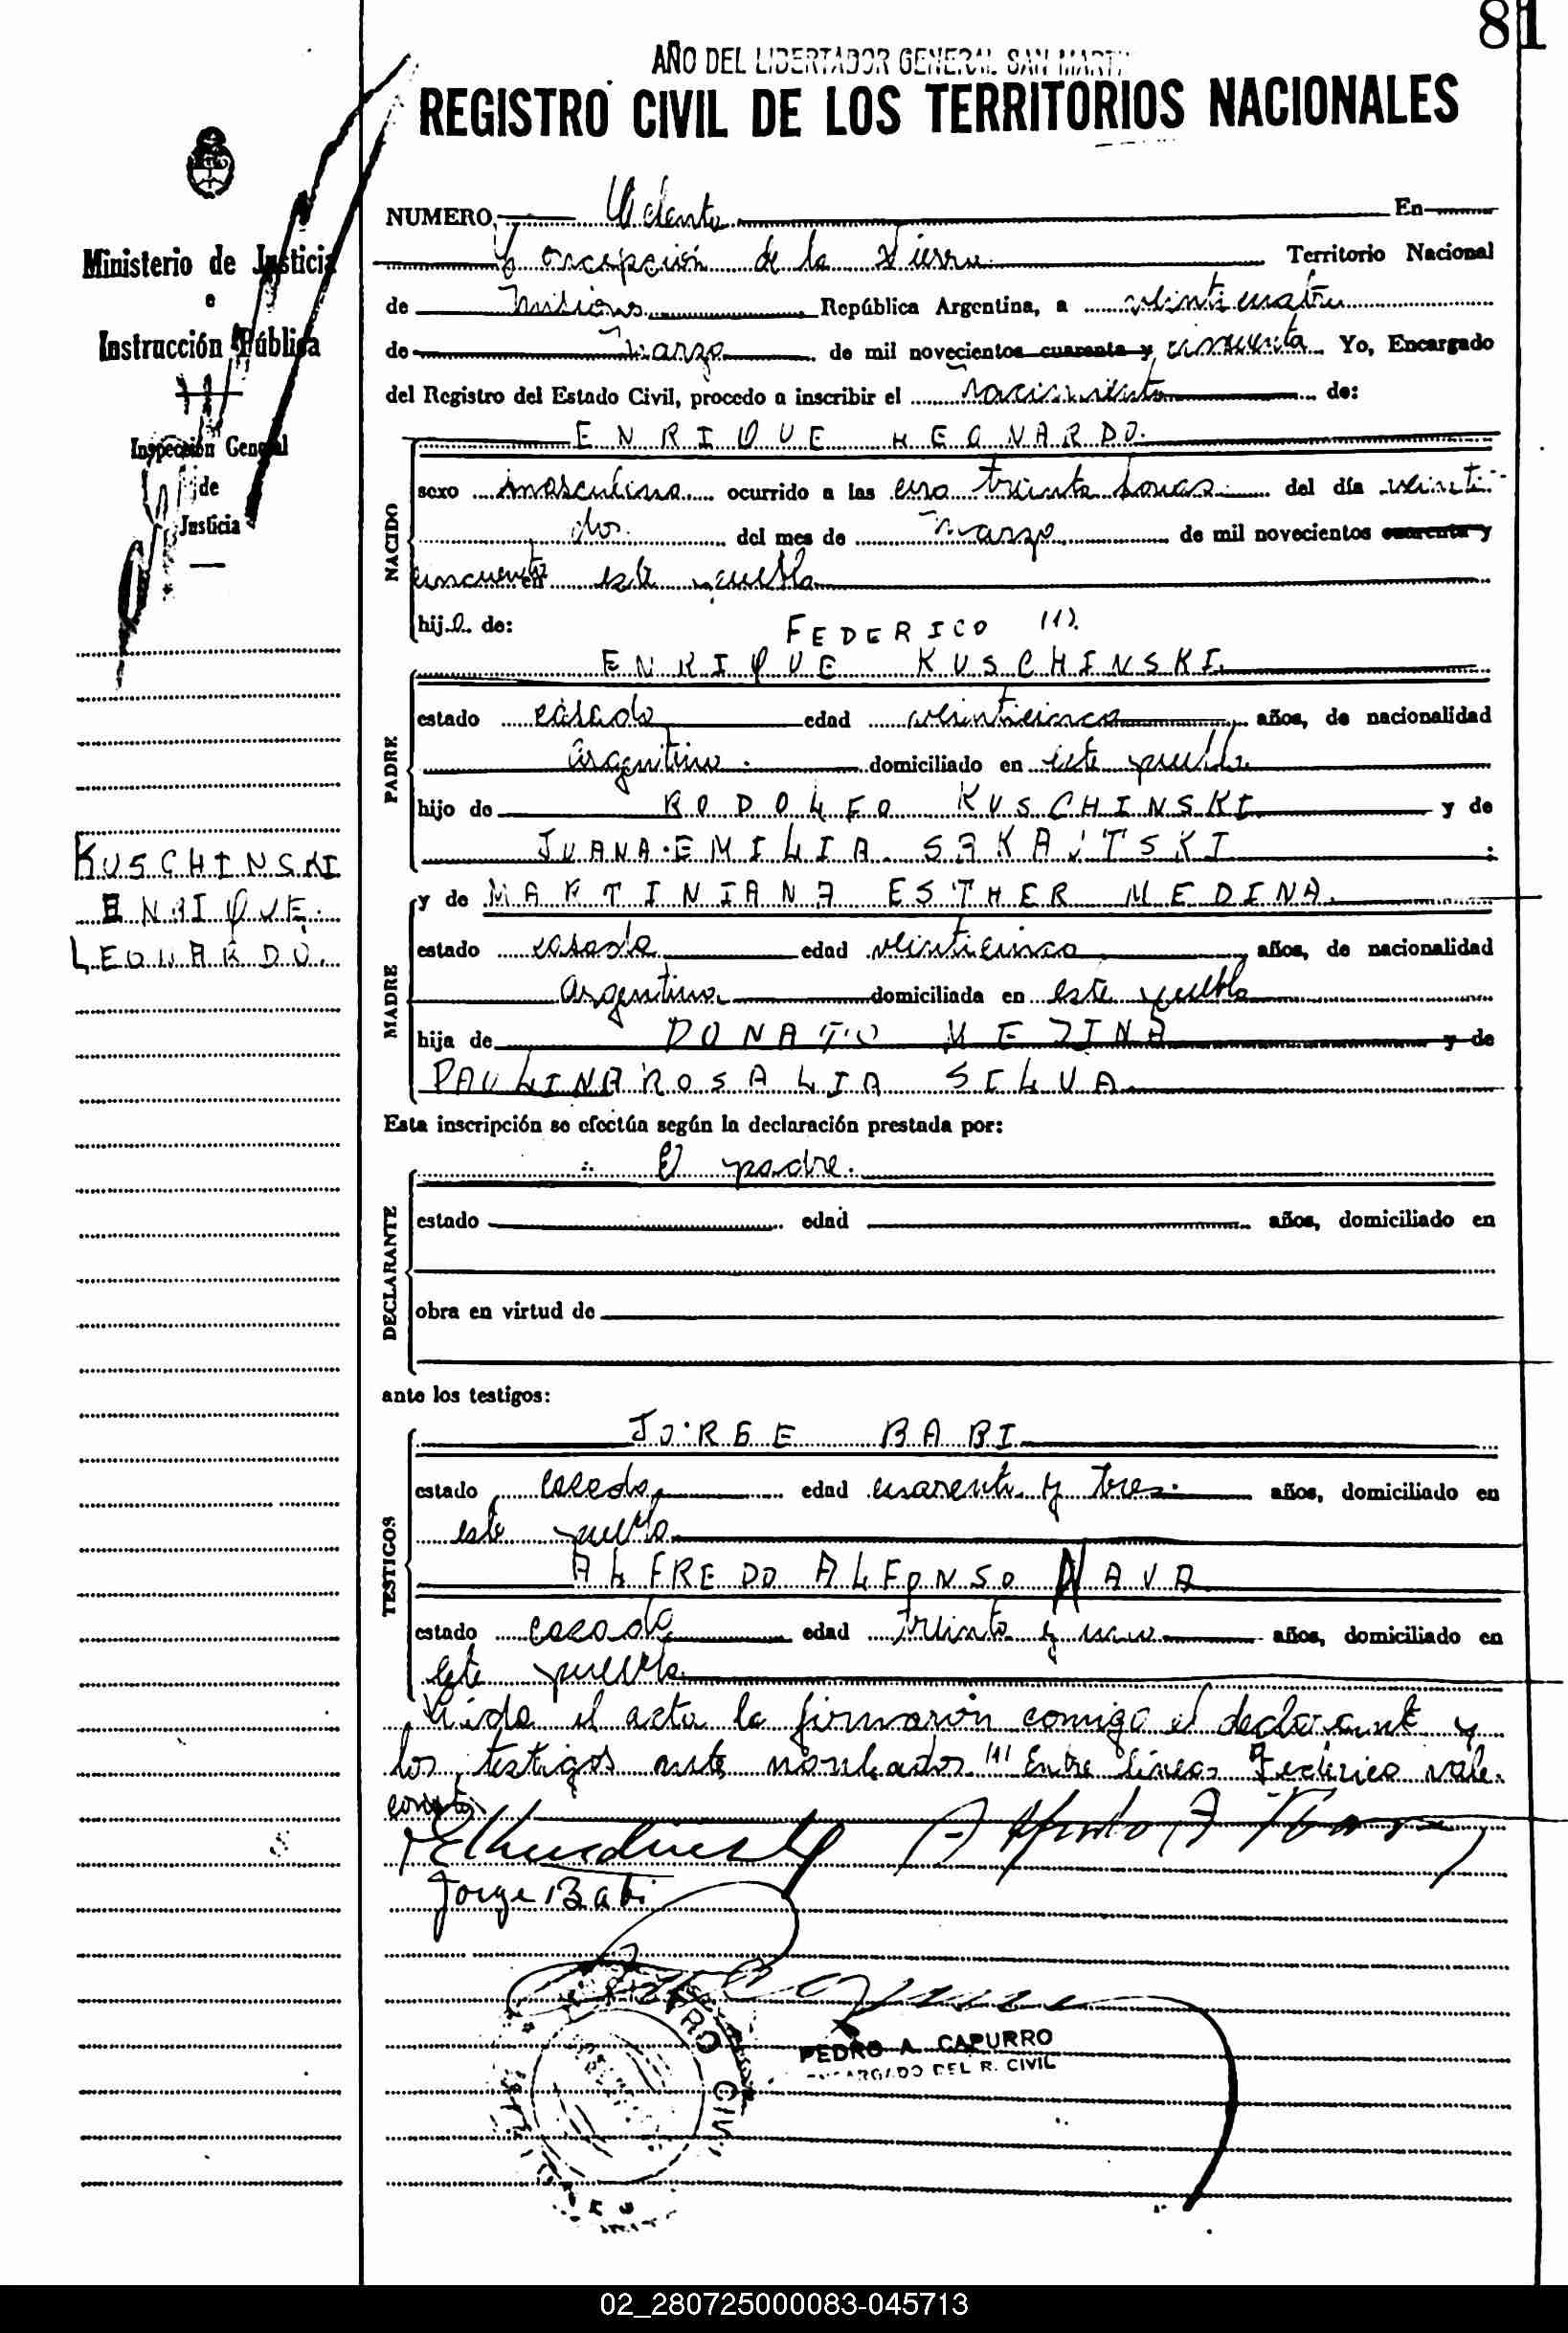 81
AÑO DEL LIBERTADOR GENERAL SAN MARTIN
REGISTRO CIVIL DE LOS TERRITORIOS NACIONALES
Ministerio de Justicia
e
Instrucción Pública
Inspección General
de
Justicia
KUSCHINSKI
ENRIQUE
LEONARDO.
NUMERO Ochenta En
Concepción de la Sierra Territorio Nacional
de Misiones República Argentina, a veinticuatro
de Marzo de mil novecientos cuarenta y cincuenta Yo, Encargado
del Registro del Estado Civil, procedo a inscribir el Nacimiento de:
ENRIQUE LEONARDO.
NACIDO
sexo masculino ocurrido a las una treinta horas del día veinti-
dos del mes de Marzo de mil novecientos cuarenta y
cincuenta este pueblo
hijo de: FEDERICO (1).
PADRE
ENRIQUE KUSCHINSKI
estado casado edad veinticinco años, de nacionalidad
Argentino. domiciliado en este pueblo
hijo de RODOLFO KUSCHINSKI y de
JUANA EMILIA
MADRE
y de MARTINIANA ESTHER MEDINA.
estado casada edad veinticinco años, de nacionalidad
Argentina domiciliada en este pueblo
hija de DONATO MEDINA y de
PAULINA ROSALIA SILVA
Esta inscripción se efectúa según la declaración prestada por:
El padre.
DECLARANTE
estado edad años, domiciliado en
obra en virtud de
ante los testigos:
TESTIGOS
JORGE BABI
estado casado edad cuarenta y tres. años, domiciliado en
este pueblo
ALFREDO ALFONSO NAVA
estado casado edad treinta y uno años, domiciliado en
este pueblo
Leída el acta la firmaron conmigo el declarante y
los testigos ante nombrados (1) Entre líneas Federico vale.
Jorge Babi
REGISTRO CIVIL
PEDRO A. CAPURRO
ENCARGADO DEL R. CIVIL
02_280725000083-045713